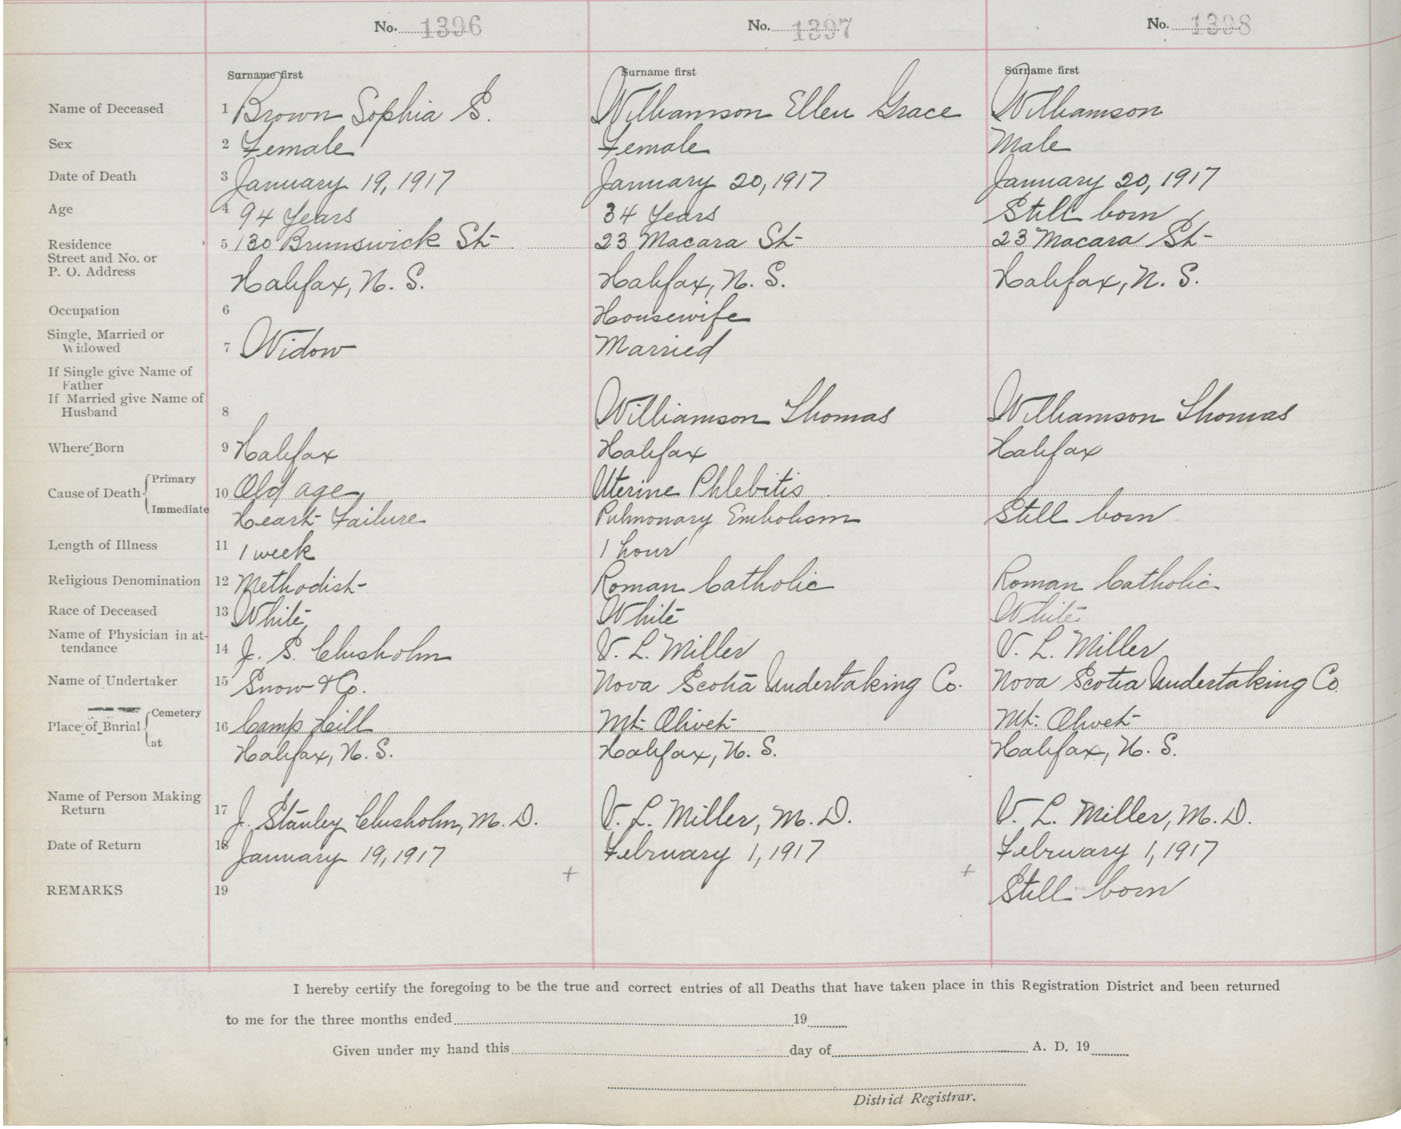 No. 1396 No. 1397 No. 1398
Surname first Surname first Surname first
Name of Deceased 1 Brown Sophia S. Williamson Ellen Grace Williamson
Sex 2 Female Female Male
Date of Death 3 January 19, 1917 January 20, 1917 January 20, 1917
Age 4 94 Years 34 Years Still born
Residence 5 130 Brunswick St 23 Macara St 23 Macara St
Street and No. or
P. O. Address Halifax, N. S. Halifax, N. S. Halifax, N. S.
Occupation 6 Housewife
Single, Married or
Widowed 7 Widow Married
If Single give Name of
Father
If Married give Name of
Husband 8 Williamson Thomas Williamson Thomas
Where Born 9 Halifax Halifax Halifax
Primary
Cause of Death 10 Old age Uterine Phlebitis
Immediate Heart Failure Pulmonary Embolism Still born
Length of Illness 11 1 week 1 hour
Religious Denomination 12 Methodist Roman Catholic Roman Catholic
Race of Deceased 13 White White White
Name of Physician in at-
tendance 14 J. S. Chisholm V. L. Miller V. L. Miller
Name of Undertaker 15 Snow & Co. Nova Scotia Undertaking Co. Nova Scotia Undertaking Co
Cemetery
Place of Burial 16 Camp Hill Mt. Olivet Mt. Olivet
at Halifax, N. S. Halifax, N. S. Halifax, N. S.
Name of Person Making
Return 17 J. Stanley Chisholm, M. D. V. L. Miller, M. D. V. L. Miller, M. D.
Date of Return 18 January 19, 1917 February 1, 1917 February 1, 1917
REMARKS 19 Still born
I hereby certify the foregoing to be the true and correct entries of all Deaths that have taken place in this Registration District and been returned
to me for the three months ended 19
Given under my hand this day of A. D. 19
District Registrar.